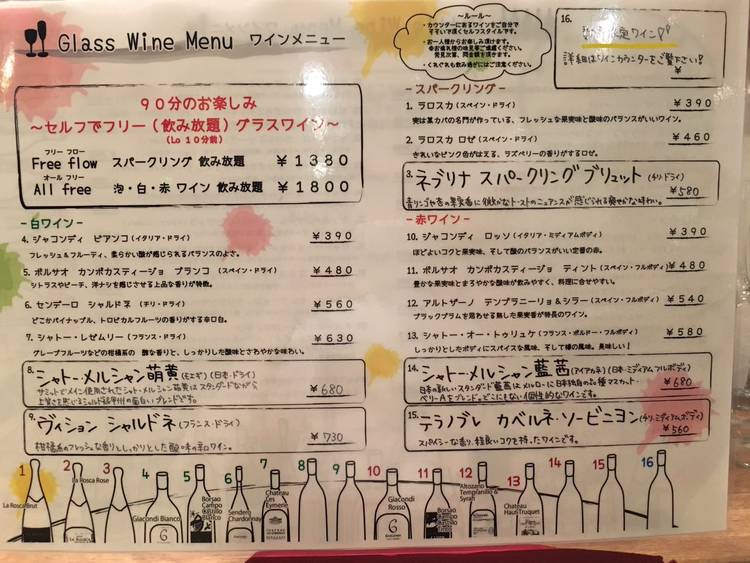 Glass Wine Menu ワインメニュー
～ルール～
・カウンターにあるワインをご自分で
そそいで頂くセルフスタイルです。
・お一人様からお楽しみ頂けます。
・くれぐれも飲み過ぎにはご注意ください。
16.
ワイン
詳細はワインカウンターをご覧下さい!
¥
90分のお楽しみ
～セルフでフリー(飲み放題)グラスワイン～
(Lo 10分前)
フリー フロー
Free flow スパークリング 飲み放題 ¥1380
オール フリー
All free 泡・白・赤 ワイン 飲み放題 ¥1800
-スパークリング-
1. ラロスカ (スペイン・ドライ) ¥390
実は某カバの名門が作っている、フレッシュな果実味と酸味のバランスがいいワイン。
2. ラロスカ ロゼ (スペイン・ドライ) ¥460
きれいなピンク色がはえる、ラズベリーの香りがするロゼ。
3. ネブリナ スパークリング ブリュット (チリ・ドライ)
¥580
青リンゴや杏の果実香に、わずかなトーストのニュアンスが感じられる爽やかな味わい。
-白ワイン-
4. ジャコンディ ビアンコ (イタリア・ドライ) ¥390
フレッシュ&フルーティ、柔らかな酸が感じられるバランスのよさ。
5. ボルサオ カンポカスティージョ ブランコ (スペイン・ドライ) ¥480
シトラスやピーチ、洋ナシを感じさせる上品な香りが特徴。
6. センデーロ シャルドネ (チリ・ドライ) ¥560
どこかパイナップル、トロピカルフルーツの香りがする辛口白。
7. シャトー・レゼムリー (フランス・ドライ) ¥630
グレープフルーツなどの柑橘系の 酸な香りと、しっかりした酸味とさわやかな味わい。
8. シャトー・メルシャン萌黄 (モエギ) (日本・ドライ)
¥680
9. ヴィジョン シャルドネ (フランス・ドライ)
¥730
柑橘系のフレッシュな香りとしっかりとした酸味の辛口ワイン。
-赤ワイン-
10. ジャコンディ ロッソ (イタリア・ミディアムボディ) ¥390
ほどよいコクと果実味、そして酸のバランスがいい定番の赤。
11. ボルサオ カンポカスティージョ ティント (スペイン・フルボディ) ¥480
豊かな果実味とまろやかな酸味が飲みやすく、料理に合せやすい。
12. アルトザーノ テンプラニーリョ&シラー (スペイン・フルボディ) ¥540
ブラックプラムを思わせる熟した果実香が特長のワイン。
13. シャトー・オー・トゥリュケ (フランス・ボルドー・フルボディ) ¥580
しっかりとしたボディにスパイスな風味、そして樽の風味。美味しい!
14. シャトー・メルシャン藍茜 (アイアカネ) (日本・ミディアムフルボディ)
¥680
15. テラノブレ カベルネ・ソービニヨン (チリ・ミディアムボディ)
¥560
スパイシーな香り、程良いコクを持ったワインです。
1 2 3 4 5 6 7 8 9 10 11 12 13 14 15 16
La Rosca Brut
La Rosca Rose
Giacondi Bianco
Borsao Campo Castillo Blanco
Sendero Chardonnay
Chateau Les Eymerie
Giacondi Rosso
Altozano Tempranillo & Syrah
Chateau Haut Truquet